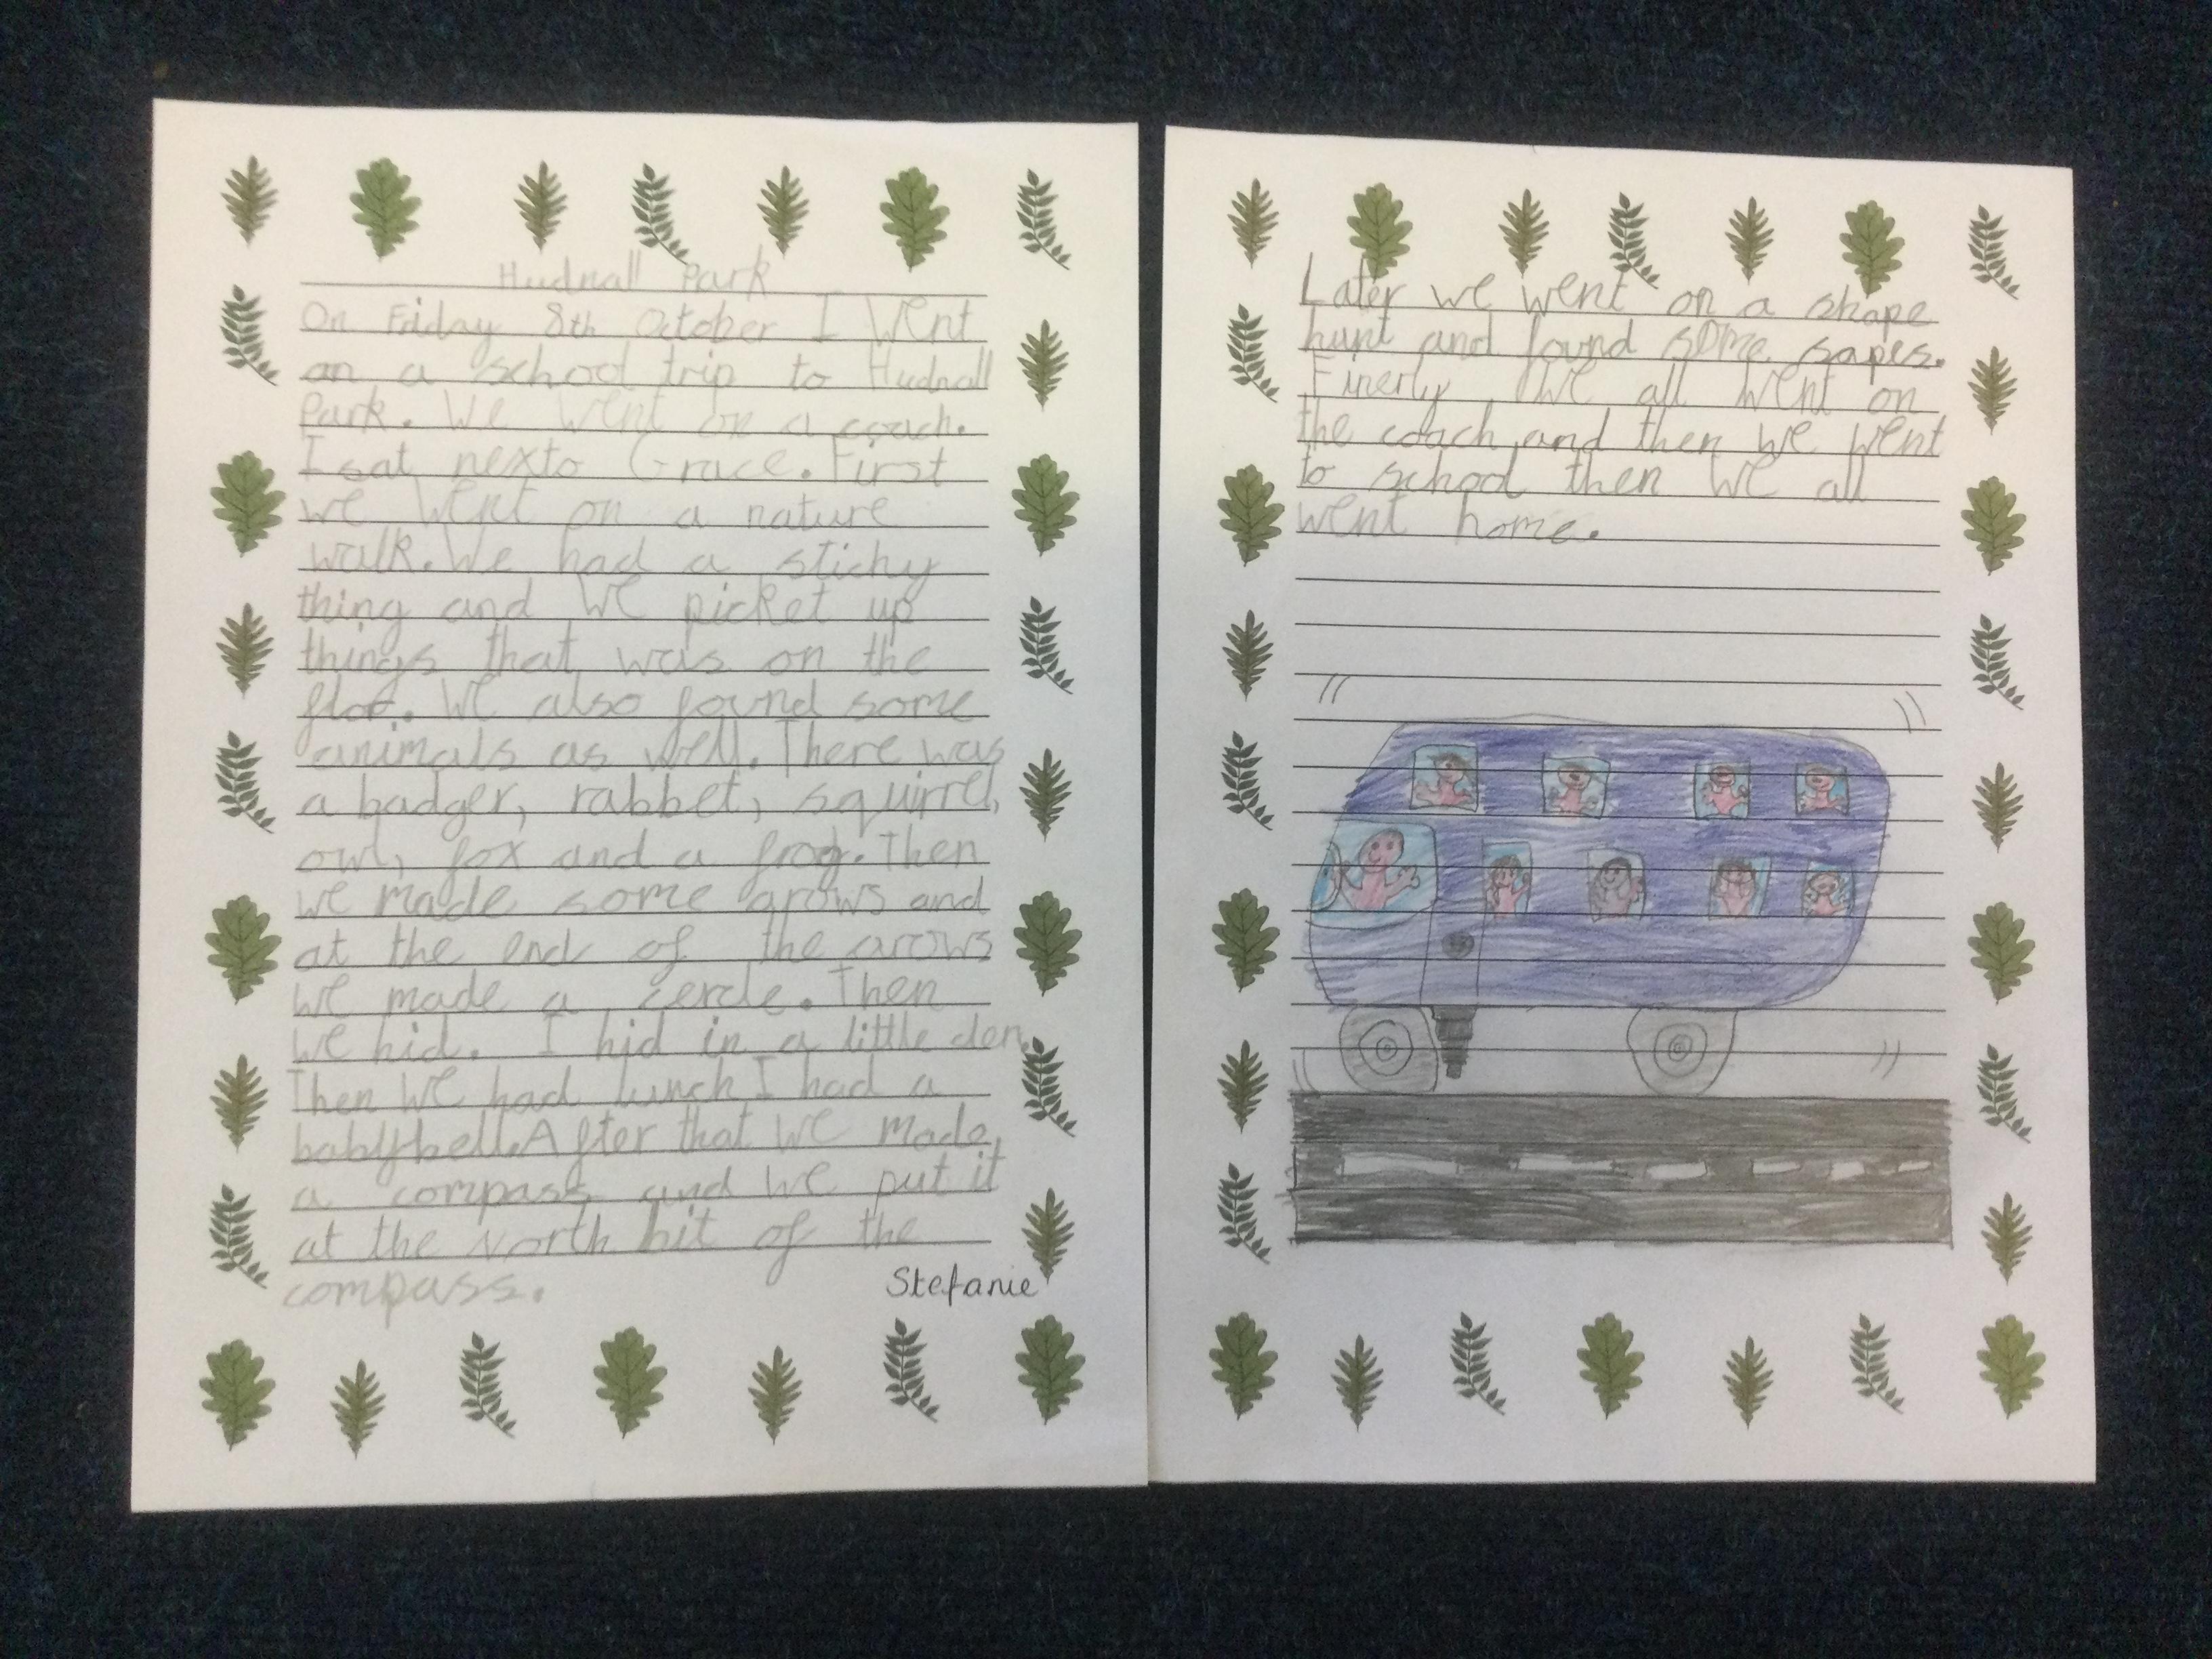 Hudnall Park
On Friday 8th October I Went
on a school trip to Hudnall
Park. We Went on a coach.
I sat nexto Grace. First
we went on a nature
walk. We had a stichy
thing and we picket up
things that was on the
floor. We also found some
animals as well. There was
a badger, rabbet, squirrel,
owl, fox and a frog. Then
we made some arows and
at the end of the arows
we made a cercle. Then
we hid. I hid in a little den.
Then we had lunch I had a
babybell. After that we made
a compass and we put it
at the North bit of the
compass.
Stefanie
Later we went on a shape
hunt and found some sapes.
Finerly we all went on
the coach and then we went
to school then we all
went home.